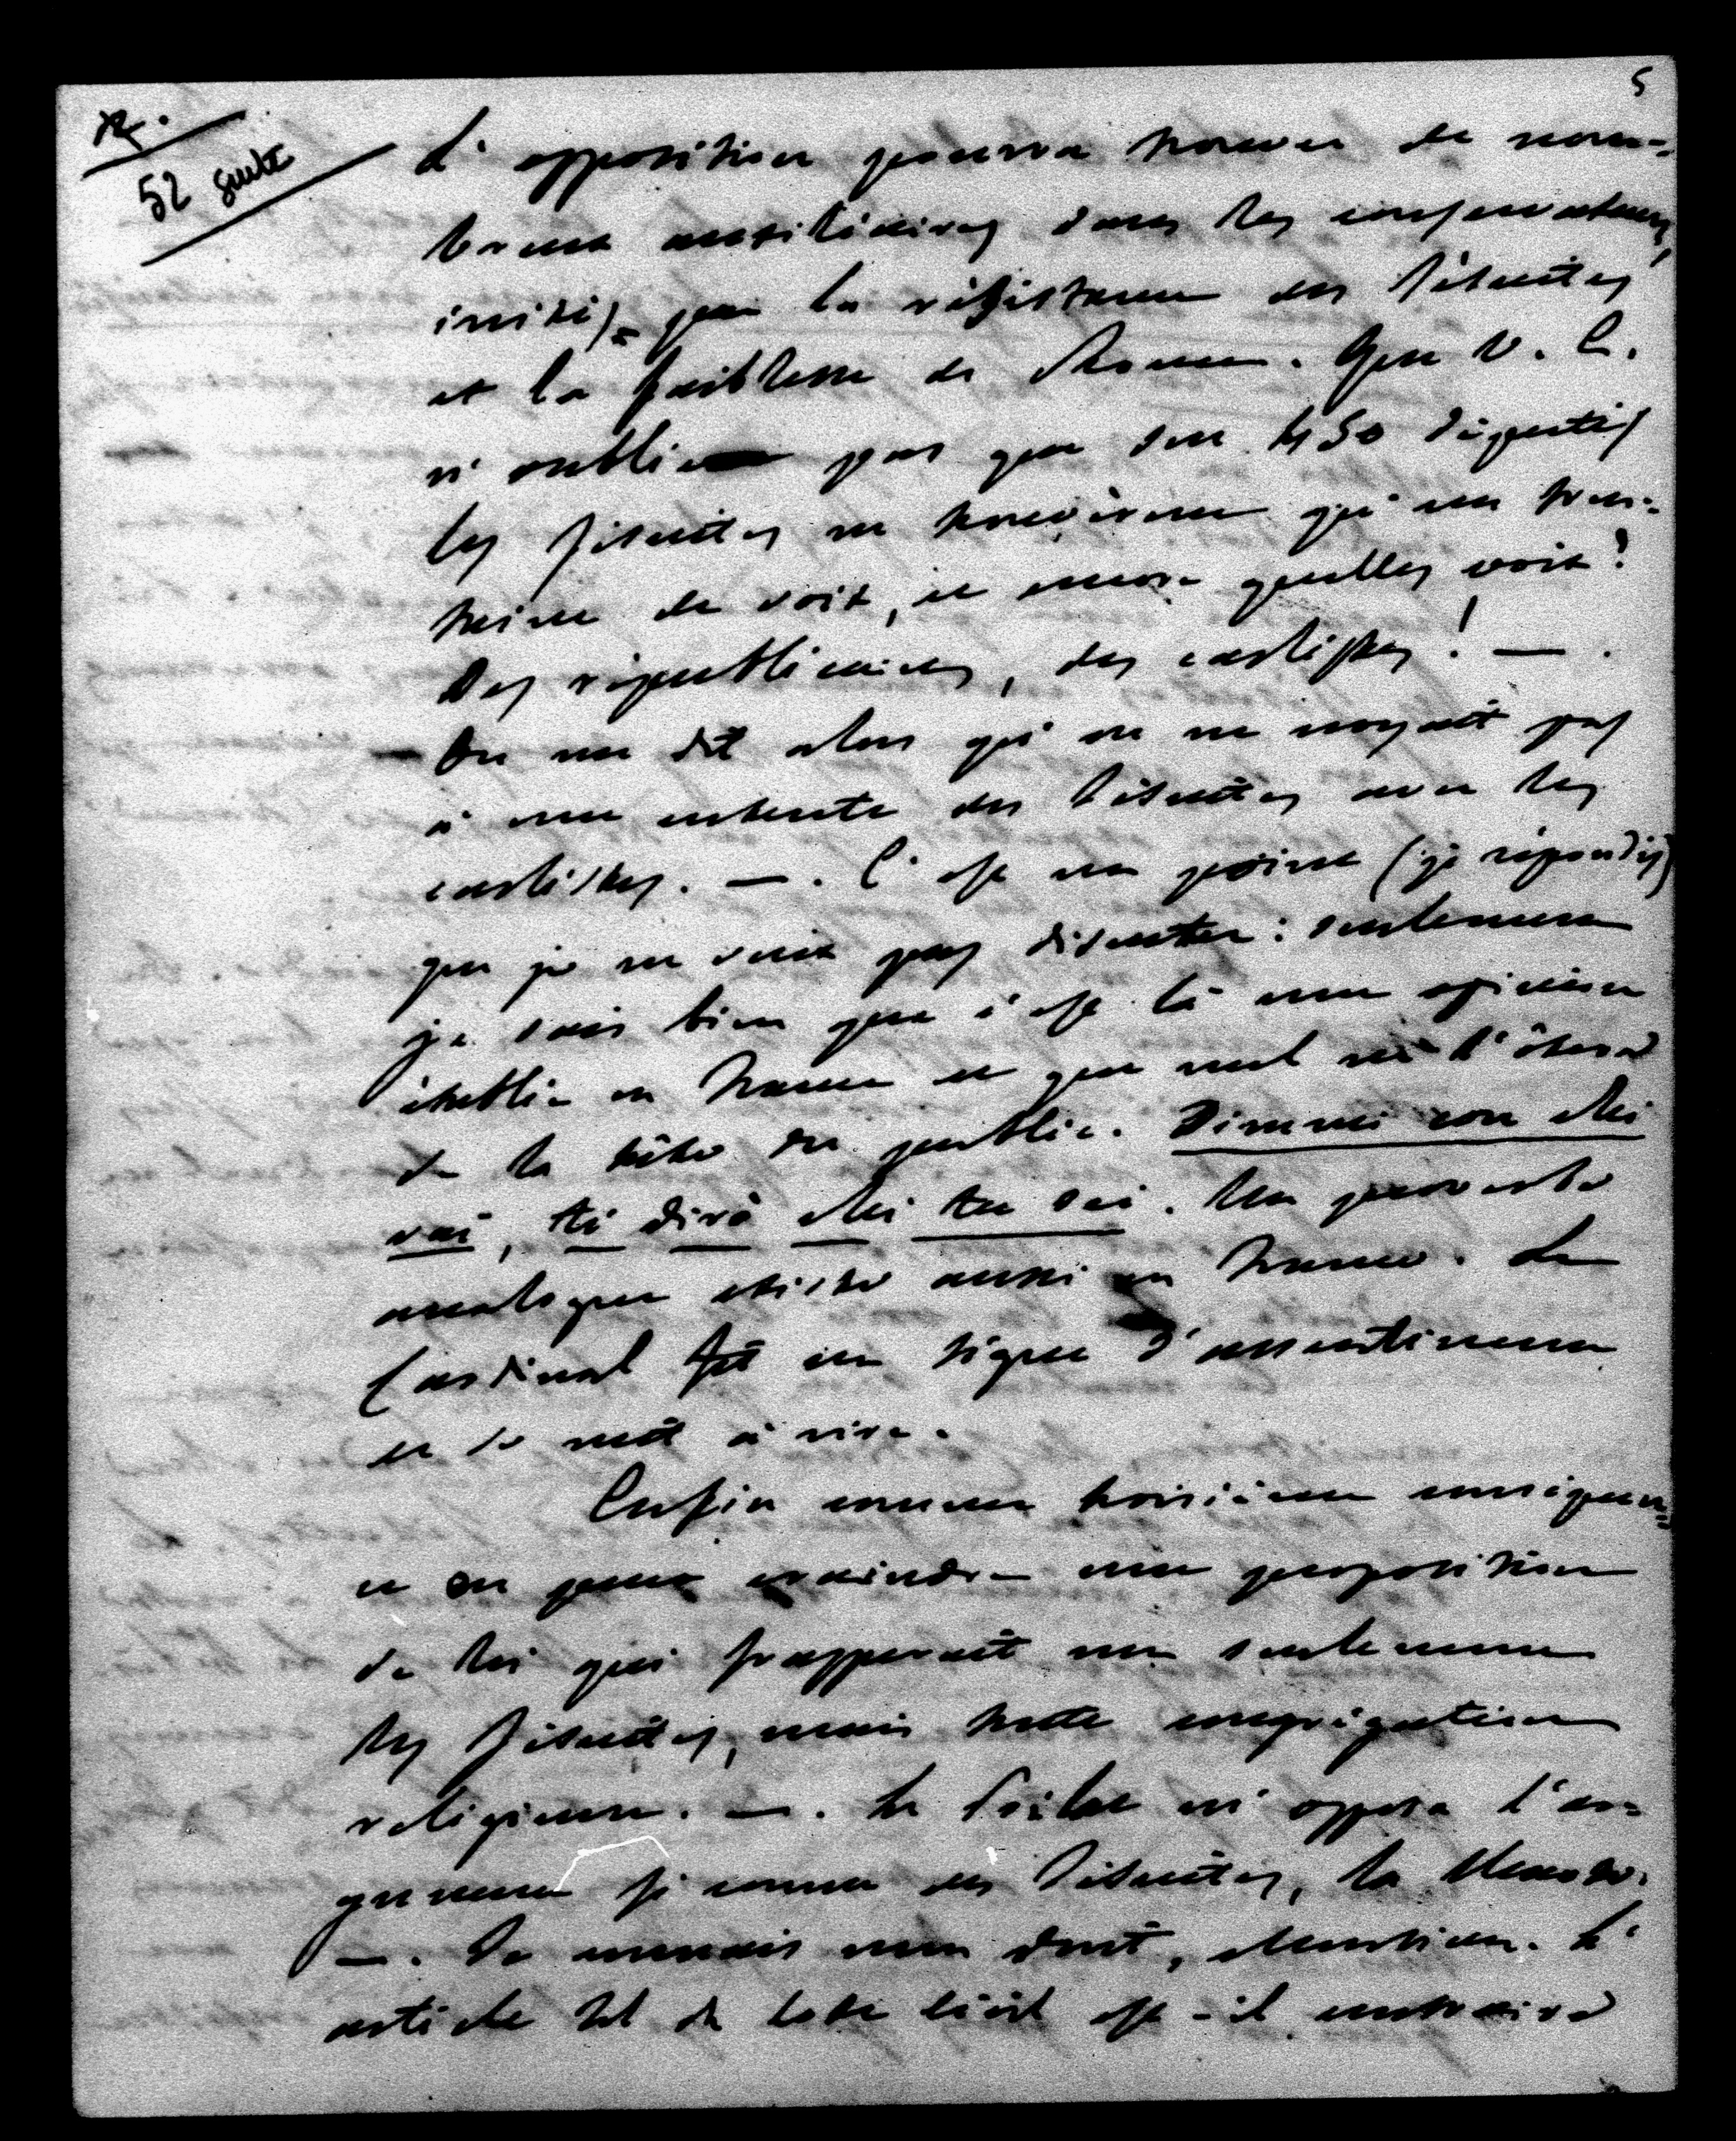 5
52 suite
L'opposition pourra trouver de nom-
breux auxiliaires dans les conservateurs,
irrités par la résistance des Jésuites
et la faiblesse de Rome. Que V. E.
n'oublie pas que sur 450 députés
les Jésuites ne trouvèrent qu'une tren-
taine de voix, et encore quelles voix!
Des républicains, des carlistes! —.
— On me dit alors qu'on ne croyait pas
à une entente des Jésuites avec les
carlistes. —. C'est un point (je répondis)
que je ne veux pas discuter: seulement
je sais bien que c'est là une opinion
établie en France et que nul ne l'ôtera
de la tête du public. Dimmi con chi
vai, ti dirò chi tu sei. Un proverbe
analogue existe aussi en France. Le
Cardinal fit un signe d'assentiment
et se mit à rire.
Enfin comme troisième conséquen-
ce on peut craindre une proposition
de loi qui frapperait non seulement
les Jésuites, mais toute congrégation
religieuse. —. Le Prélat m'opposa l'ar-
gument si connu des Jésuites, la Charte.
—. Je connais mon droit, Monsieur. L'
article du Code Civil est-il contraire